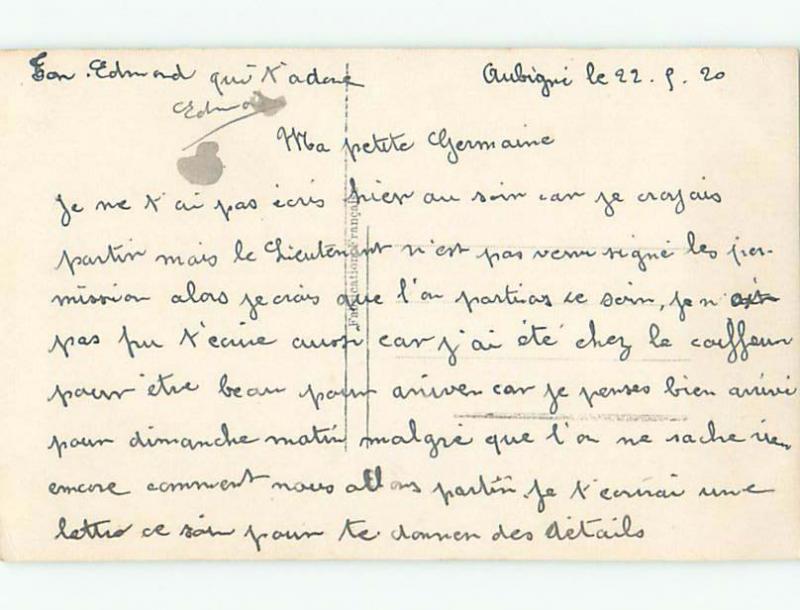 Ton Edmond qui t'adore
Edmond
Aubigné le 22. 5. 20
Ma petite Germaine
Je ne t'ai pas écris hier au soir car je croyais
partir mais le Lieutenant n'est pas venu signé les per-
mission alors je crois que l'on partiras ce soir, je n'ai
pas pu t'écrire aussi car j'ai été chez le coiffeur
pour être beau pour arriver car je penses bien arrivé
pour dimanche matin malgré que l'on ne sache rien
encore comment nous allons partir. Je t'écrirai une
lettre ce soir pour te donner des détails
Fabrication Française